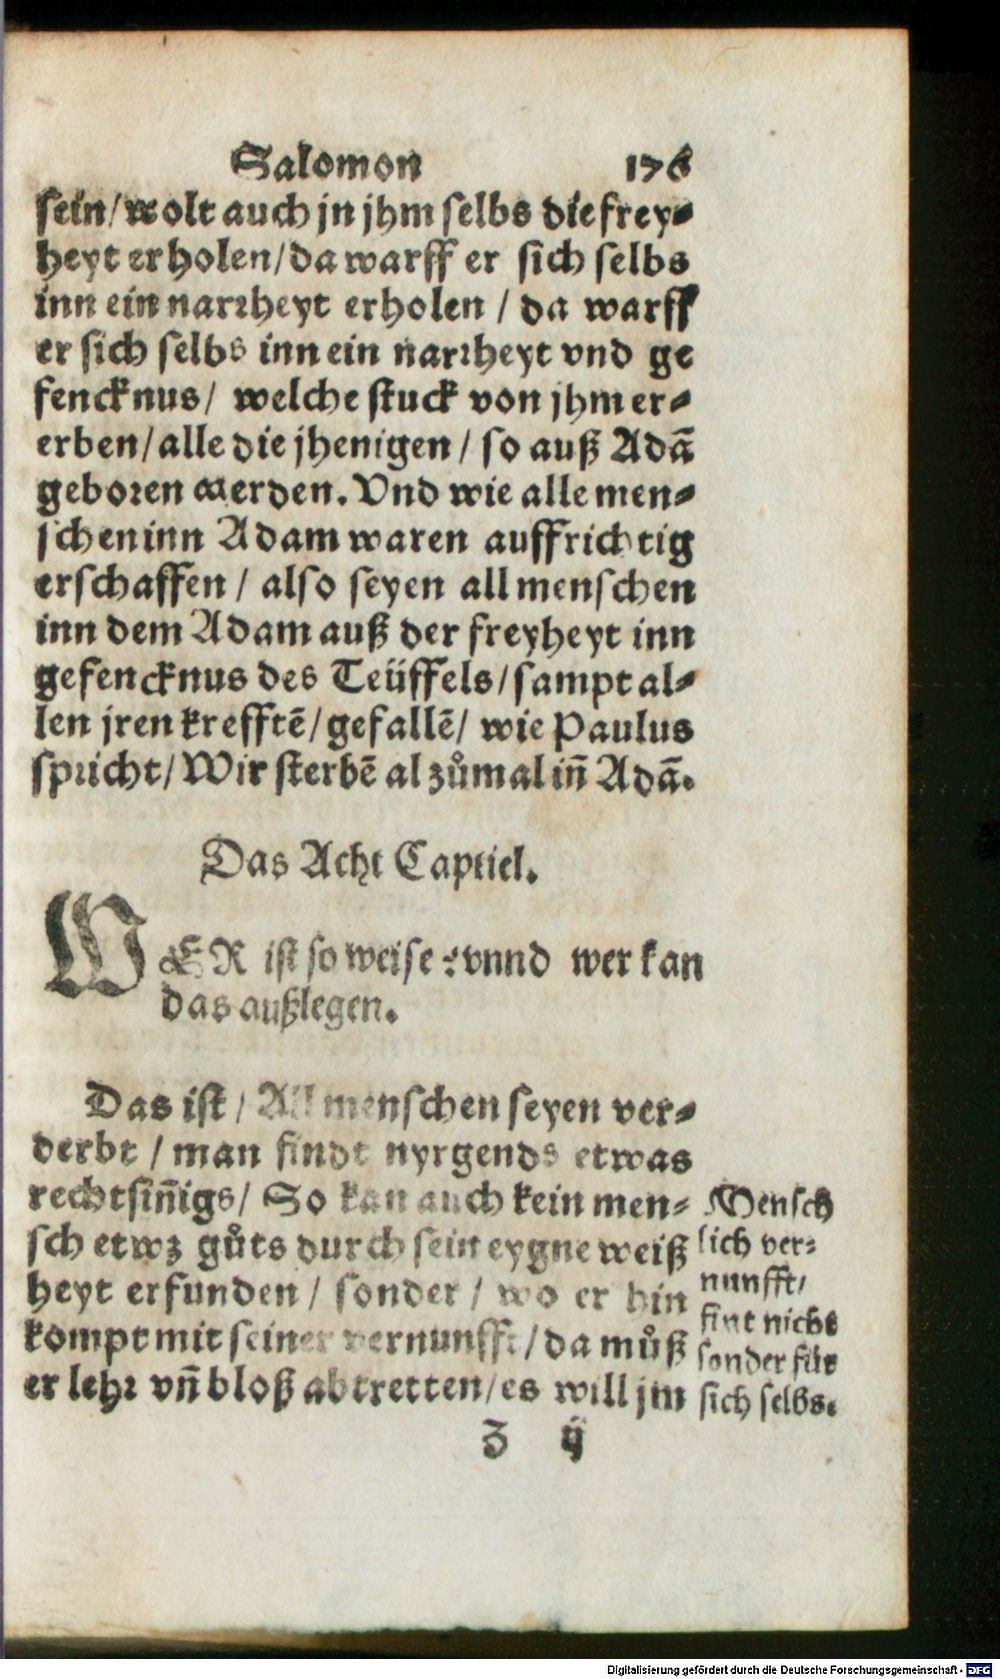 Salomon 176
sein/ wolt auch jn jhm selbs die frey-
heyt erholen/ da warff er sich selbs
inn ein narrheyt erholen / da warff
er sich selbs inn ein narrheyt vnd ge
fencknus/ welche stuck von jhm er-
erben/ alle die jhenigen / so auß Adā
geboren werden. Vnd wie alle men-
schen inn Adam waren auffrichtig
erschaffen / also seyen all menschen
inn dem Adam auß der freyheyt inn
gefencknus des Teüffels/ sampt al-
len jren krefftē/ gefallē/ wie Paulus
spricht/ Wir sterbē al zůmal iñ Adā.
Das Acht Captiel.
WER ist so weise : vnnd wer kan
das außlegen.
Das ist / All menschen seyen ver-
derbt / man findt nyrgends etwas
rechtsiñigs/ So kan auch kein men-
sch etwz gůts durch sein eygne weiß
heyt erfunden / sonder / wo er hin
kompt mit seiner vernunfft/ da můß
er lehr vñ bloß abtretten/ es will jm
Mensch
lich ver-
nunfft/
fint nichs
sonder für
sich selbs.
Z ij
Digitalisierung gefördert durch die Deutsche Forschungsgemeinschaft - DFG